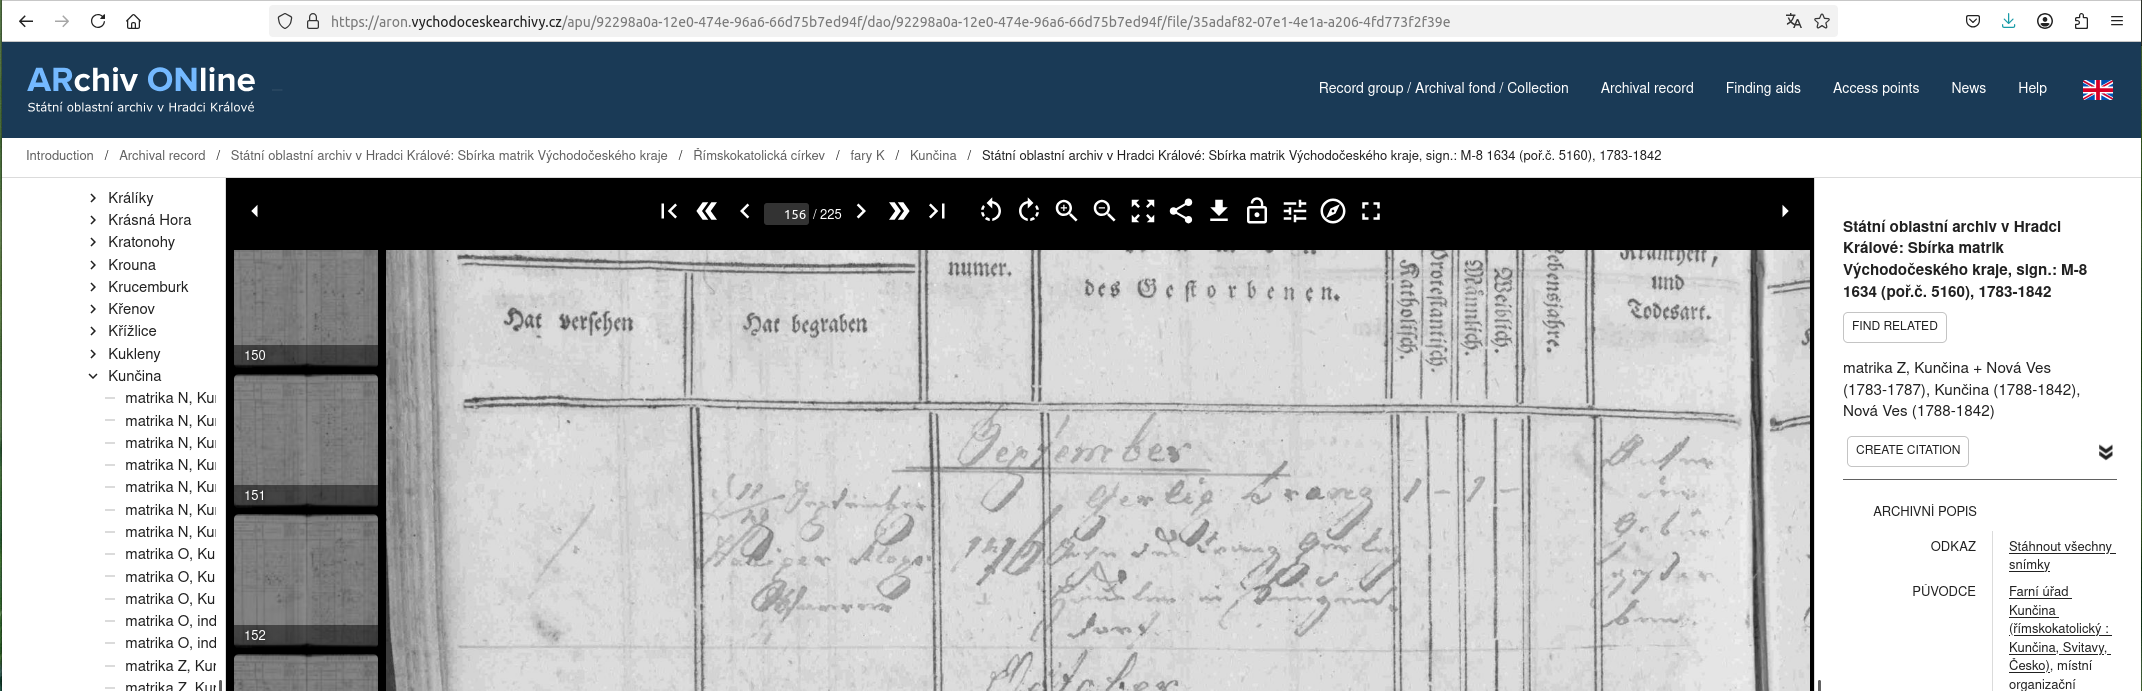 https://aron.vychodoceskearchivy.cz/apu/92298a0a-12e0-474e-96a6-66d75b7ed94f/dao/92298a0a-12e0-474e-96a6-66d75b7ed94f/file/35adaf82-07e1-4e1a-a206-4fd773f2f39e
ARchiv ONline
Státní oblastní archiv v Hradci Králové
Record group / Archival fond / Collection
Archival record
Finding aids
Access points
News
Help
Introduction / Archival record / Státní oblastní archiv v Hradci Králové: Sbírka matrik Východočeského kraje / Římskokatolická církev / fary K / Kunčina / Státní oblastní archiv v Hradci Králové: Sbírka matrik Východočeského kraje, sign.: M-8 1634 (poř.č. 5160), 1783-1842
Králíky
Krásná Hora
Kratonohy
Krouna
Krucemburk
Křenov
Křížlice
Kukleny
Kunčina
matrika N, Ku
matrika N, Ku
matrika N, Ku
matrika N, Ku
matrika N, Ku
matrika N, Ku
matrika N, Ku
matrika O, Ku
matrika O, Ku
matrika O, Ku
matrika O, ind
matrika O, ind
matrika Z, Kur
matrika Z, Kur
156 / 225
150
151
152
Hat versehen
Hat begraben
numer.
des Gestorbenen.
Katholisch.
Protestantisch.
Männlich.
Weiblich.
Lebensjahre.
Krankheit,
und
Todesart.
September
September
1 - 1 -
October
Státní oblastní archiv v Hradci
Králové: Sbírka matrik
Východočeského kraje, sign.: M-8
1634 (poř.č. 5160), 1783-1842
FIND RELATED
matrika Z, Kunčina + Nová Ves
(1783-1787), Kunčina (1788-1842),
Nová Ves (1788-1842)
CREATE CITATION
ARCHIVNÍ POPIS
ODKAZ
Stáhnout všechny
snímky
PŮVODCE
Farní úřad
Kunčina
(římskokatolický :
Kunčina, Svitavy,
Česko), místní
organizační